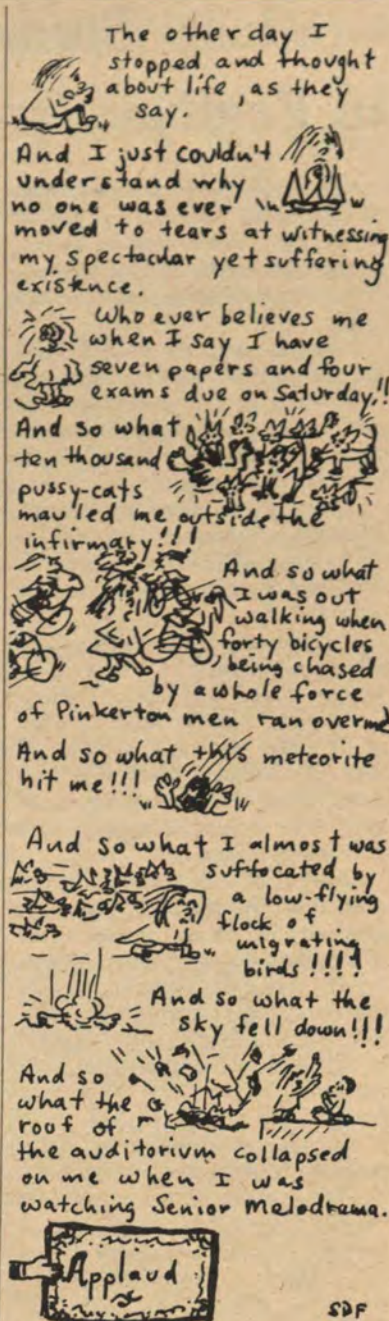 The other day I
stopped and thought
about life, as they
say.
And I just couldn't
understand why
no one was ever
moved to tears at witnessing
my spectacular yet suffering
existence.
Who ever believes me
when I say I have
seven papers and four
exams due on Saturday!!
And so what
ten thousand
pussy-cats
mauled me outside the
infirmary!!!
And so what
I was out
walking when
forty bicycles
being chased
by a whole force
of Pinkerton men ran over me
And so what this meteorite
hit me!!!
And so what I almost was
suffocated by
a low-flying
flock of
migrating
birds!!!!
And so what the
sky fell down!!!
And so
what the
roof of
the auditorium collapsed
on me when I was
watching Senior Melodrama.
Applaud
SDF